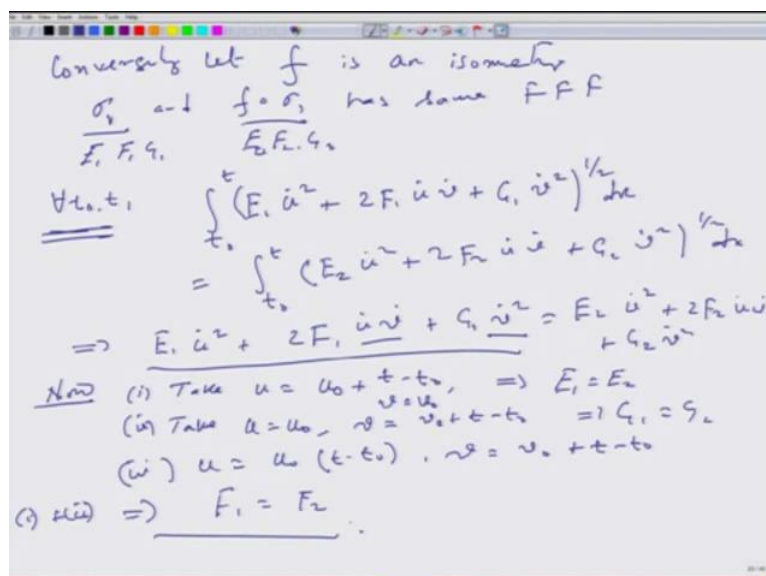 Conversely let f is an isometry
σ₁ and f∘σ₁ has same FFF
E₁ F₁ G₁ E₂ F₂ G₂
∀ t₀, t₁ ∫_{t₀}^{t} (E₁ u̇² + 2F₁ u̇ v̇ + G₁ v̇²)^{1/2} dx
= ∫_{t₀}^{t} (E₂ u̇² + 2F₂ u̇ v̇ + G₂ v̇²)^{1/2} dx
⇒ E₁ u̇² + 2F₁ u̇ v̇ + G₁ v̇² = E₂ u̇² + 2F₂ u̇ v̇
+ G₂ v̇²
Now (i) Take u = u₀ + t - t₀, ⇒ E₁ = E₂
v = v₀
(ii) Take u = u₀, v = v₀ + t - t₀ ⇒ G₁ = G₂
(iii) u = u₀ (t - t₀), v = v₀ + t - t₀
(i) + (ii) ⇒ F₁ = F₂